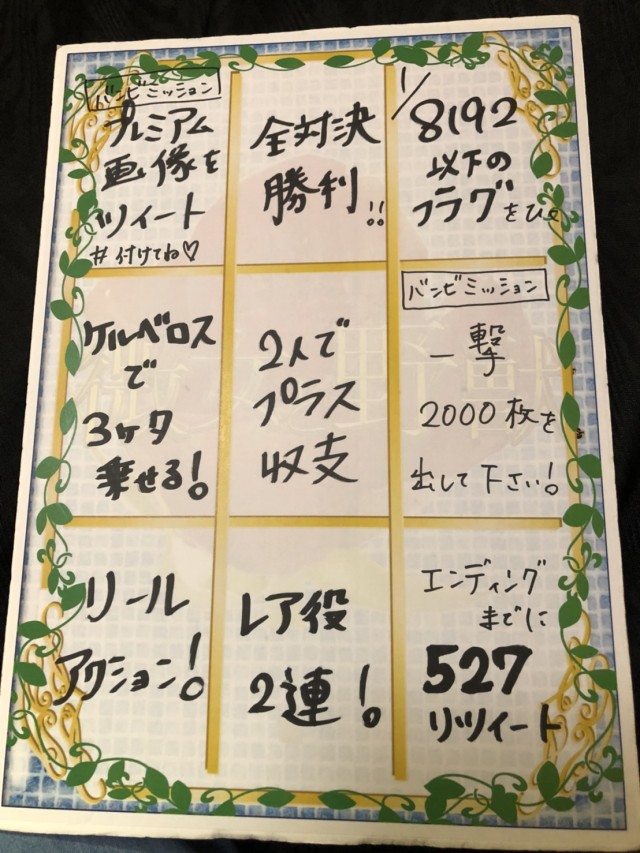 バンビミッション
プレミアム
画像を
ツイート
#付けてね♡
全対決
勝利!!
1/8192
以下の
フラグをひく
ケルベロス
で
3ケタ
乗せる!
2人で
プラス
収支
バンビミッション
一撃
2000枚を
出して下さい!
リール
アクション!
レア役
2連!
エンディング
までに
527
リツイート